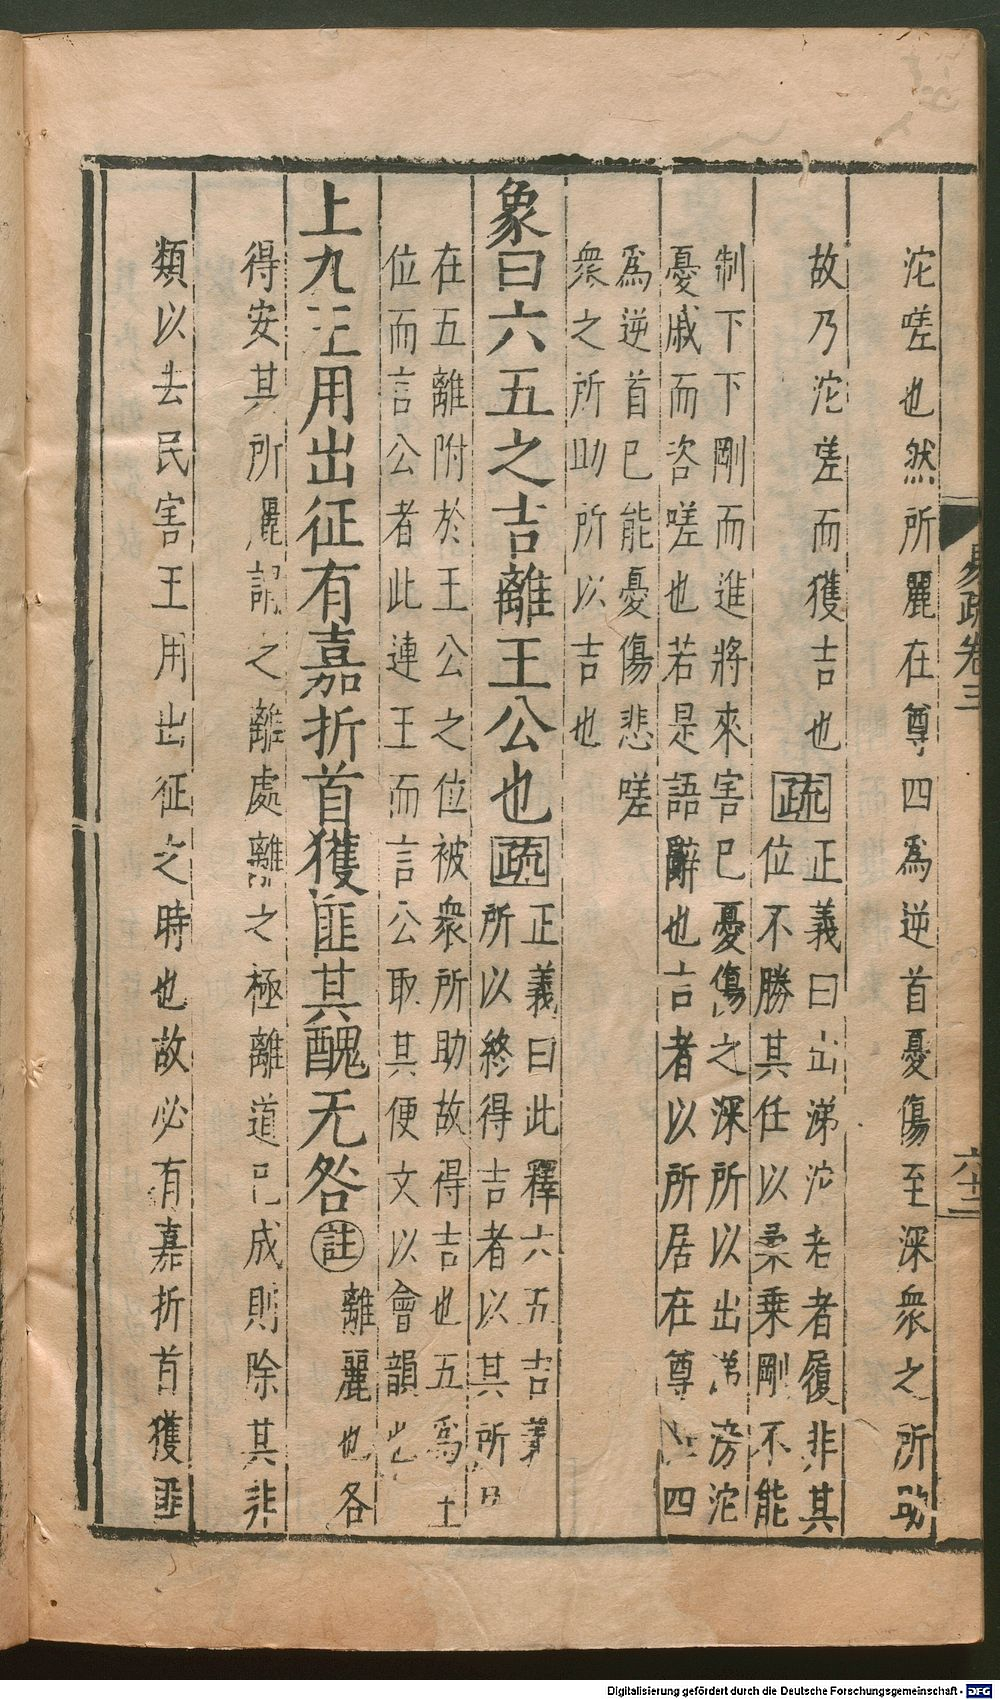 沱嗟也然所麗在尊四爲逆首憂傷至深衆之所助
故乃沱嗟而獲吉也
疏
正義曰出涕沱若者履非其
位不勝其任以柔乘剛不能
制下下剛而進將來害已憂傷之深所以出涕滂沱
憂戚而咨嗟也若是語辭也言者以所居在尊位四
爲逆首已能憂傷悲嗟
衆之所助所以吉也
象曰六五之吉離王公也
疏
正義曰此釋六五吉義
所以終得吉者以其所
在五離附於王公之位被衆所助故得吉也五爲王
位而言公者此連王而言公取其便文以會韻也
上九王用出征有嘉折首獲匪其醜无咎
註
離麗也各
得安其所麗謂之離處離之極離道已成則除其非
類以去民害王用出征之時也故必有嘉折首獲匪
易疏卷三
六十二
Digitalisierung gefördert durch die Deutsche Forschungsgemeinschaft - DFG